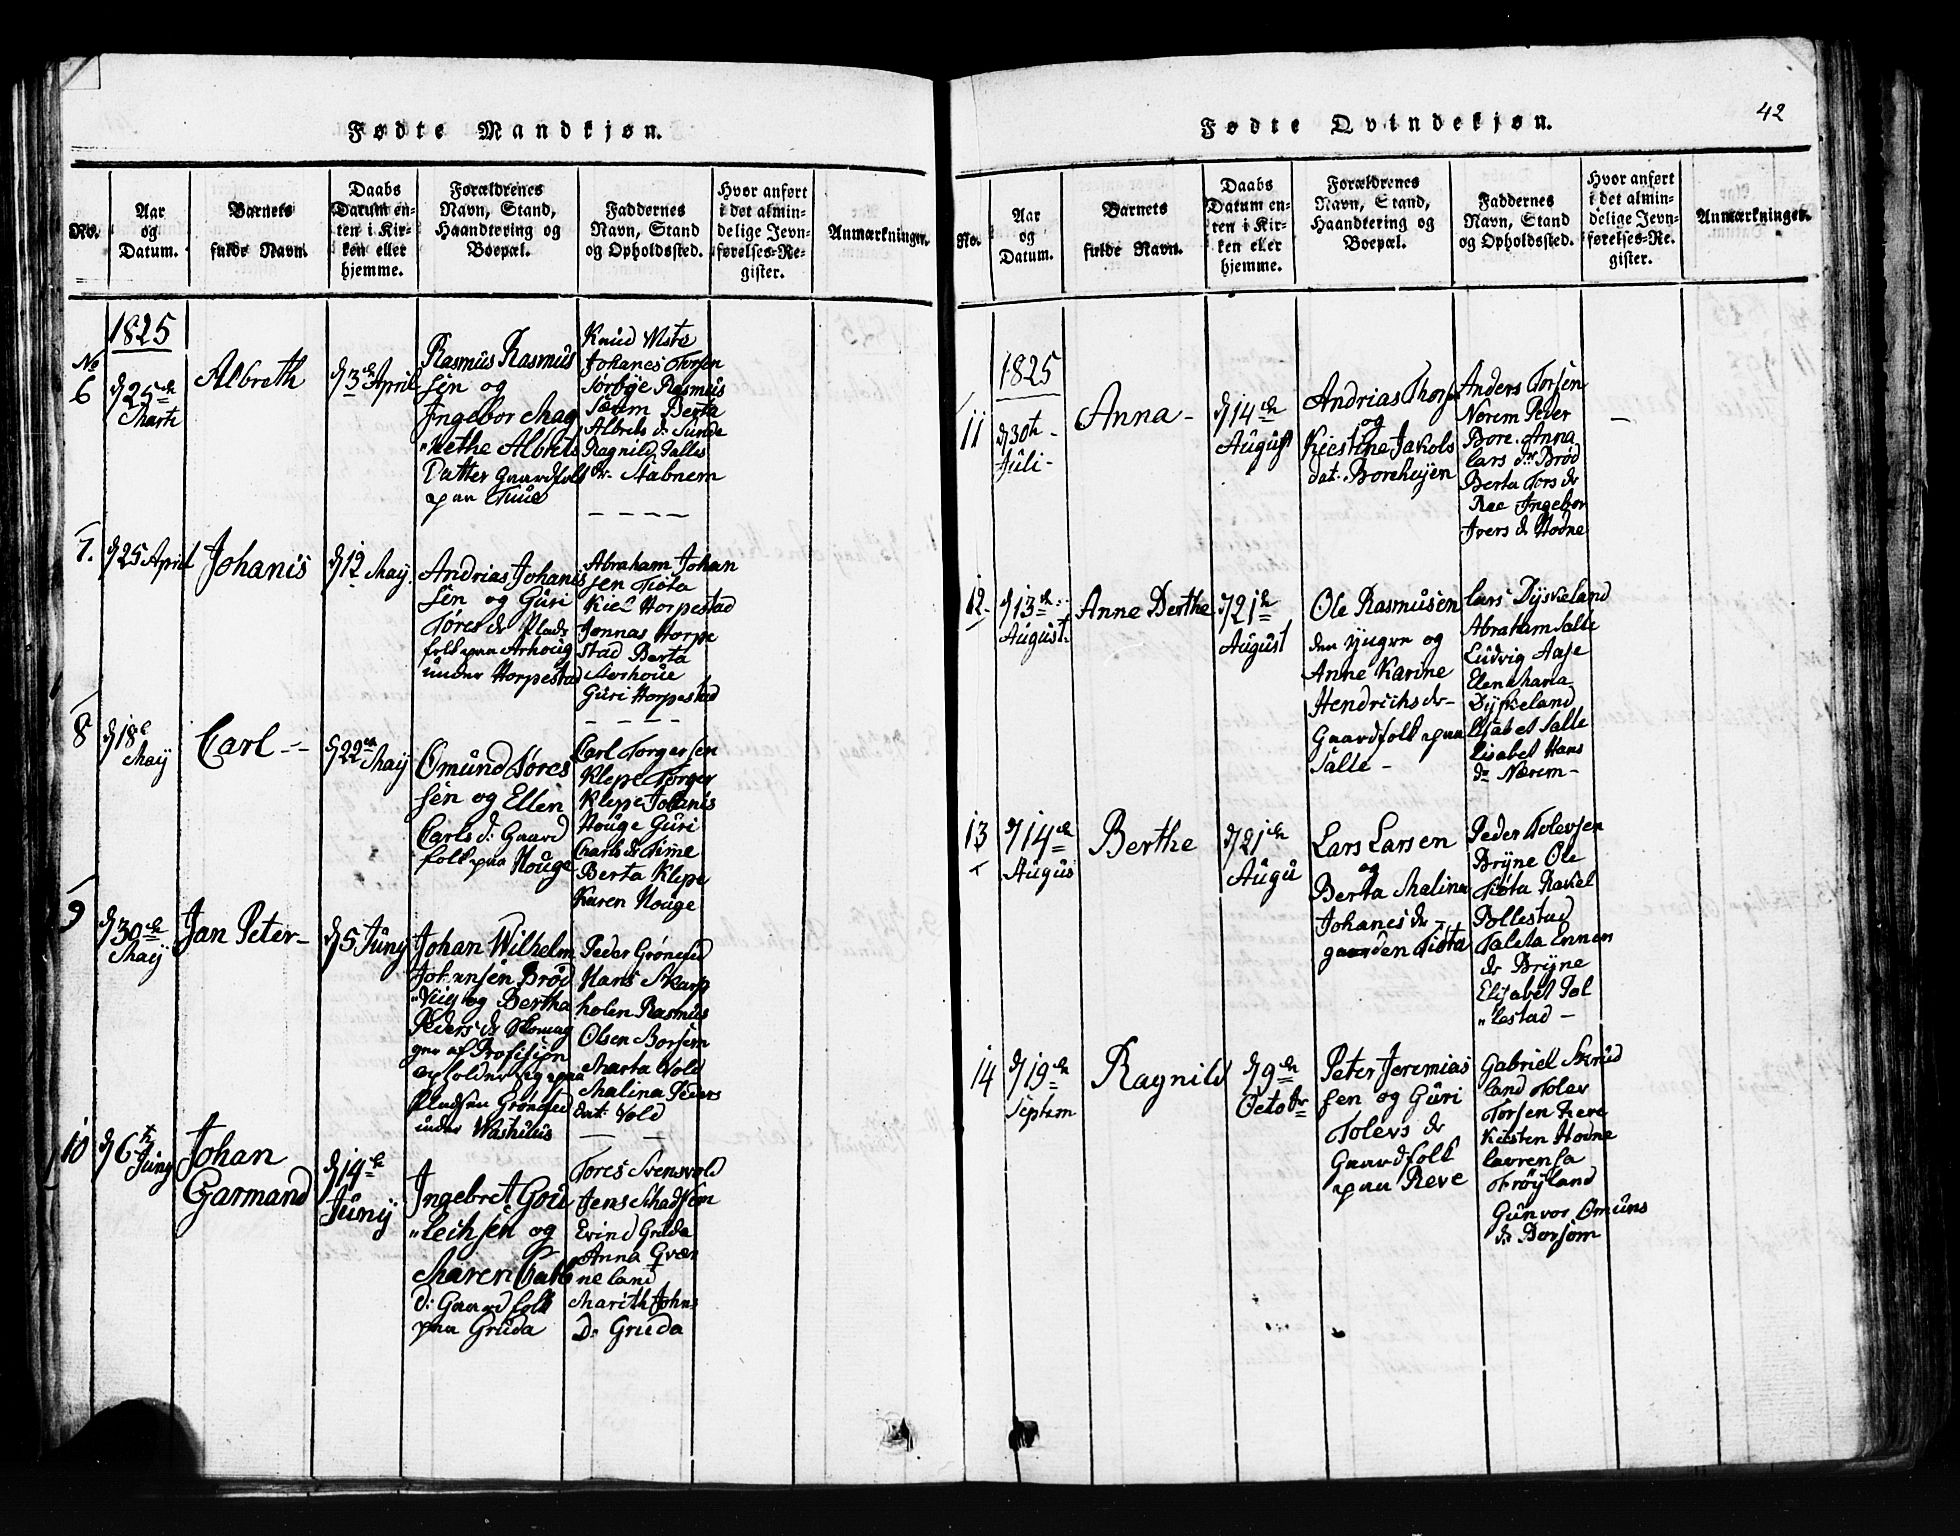 Fødte Mandkjøn.
No.
Aar
og
Datum.
Barnets
fulde Navn.
Daabs
Datum en-
ten i Kir-
ken eller
hjemme.
Forældrenes
Navn, Stand,
Haandtering og
Boepæl.
Faddernes
Navn, Stand
og Opholdssted.
Hvor anført
i det almin-
delige Jevn-
førelses-Re-
gister.
Anmærkninger.
1825
No
6
d 25de
Marti
Albreth
d 3de April
Rasmus Rasmus
sen og
Ingebor Mag
"rethe Albrets
Datter Gaardfolk
paa Tuue
Knud Wiste
Johanes Torsen
Sørbye Rasmus
Særem Berta
Albrets d: Sunde
Ragnild Salles
dr. Aabnem
7.
d 25 April
Johanis
d 12 Maij
Andrias Johanis
sen og Guri
Tores dr Plads
folk paa Arhoug
under Horpestad
Abraham Johan
sen Tiøta
Kiel Horpestad
Jonnas Horpe
stad Berta
Aerhoue
Guri Horpestad
8
d 18de
Maij
Carl
d 22de Maij
Omund Tores
sen og Ellen
Carls d: Gaard
folk paa Houge
Carl Torgersen
Klepe Torger
Klepe Johanis
Houge Guri
Carls dr Time
Berta Klepe
Karen Houge
9
d 30de
Maij
Jan Peter
d 5 Juny
Johan Wilhelm
Johansen Brød
"Viig og Bertha
Peders dr Skomag
ger af Profision
opholder sig paa
Pladsen Grønested
under Washuus
Peder Grønested
Hans Skarp
holen Rasmus
Olsen Borsem
Marta Vold
Malina Peders
dat: Vold
10
d 6te
Juny
Johan
Garmand
d 14de
Junij
Ingebret Gou
"leihsen og
Maren Gab
d: Gaardfolk
paa Gruda
Tores Svensvold
Jens Madssen
Evind Gruda
Anna Qvær
neland
Marith Johns
D: Gruda
Fødte Qvindekjøn.
42
No.
Aar
og
Datum.
Barnets
fulde Navn.
Daabs
Datum en-
ten i Kir-
ken eller
hjemme.
Forældrenes
Navn, Stand,
Haandtering og
Boepæl.
Faddernes
Navn, Stand
og Opholdssted.
Hvor anført
i det almin-
delige Jevn-
førelses-Re-
gister.
Anmærkninger.
1825
11
d 30te
Juli
Anna
d 14de
August
Andrias Thors
og
Kiestine Jakobs
dat. Borehejen
Anders Torsen
Norem Peder
Bore. Anna
Lars dr Brød
Berta Tors dr
Ree Ingebor
Ivers dr Hodne
12
d 13de
August
Anne Berthe
d 21de
August
Ole Rasmusen
den yngre og
Anne Karine
Hendrichs dr
Gaardfolk paa
Salle
Lars Dyskeland
Abraham Salle
Ludvig Aase
Elen Maria
Dyskeland
Elsabet Salle
Lisabet Hans
dr Nærem
13
d 14de
Augus
Berthe
d 21de
Augu
Lars Larsen
og
Berta Malina
Johanes dr
gaarden Tiøta
Peder Tolevsen
Bryne Ole
Tiøta Rakel
Pollestad
Taleta Ennen
dr Bryne
Elisabet Pol
"lestad
14
d 19de
Septem
Ragnild
d 9de
Octobr
Peter Jeremias
sen og Guri
Tolevs dr
Gaardfolk
paa Reve
Gabriel Skrud
land Tolev
Torsen Reve
Kirsten Hodne
Lavrensa
Frøyland
Gunvor Omuns
dr Borsom